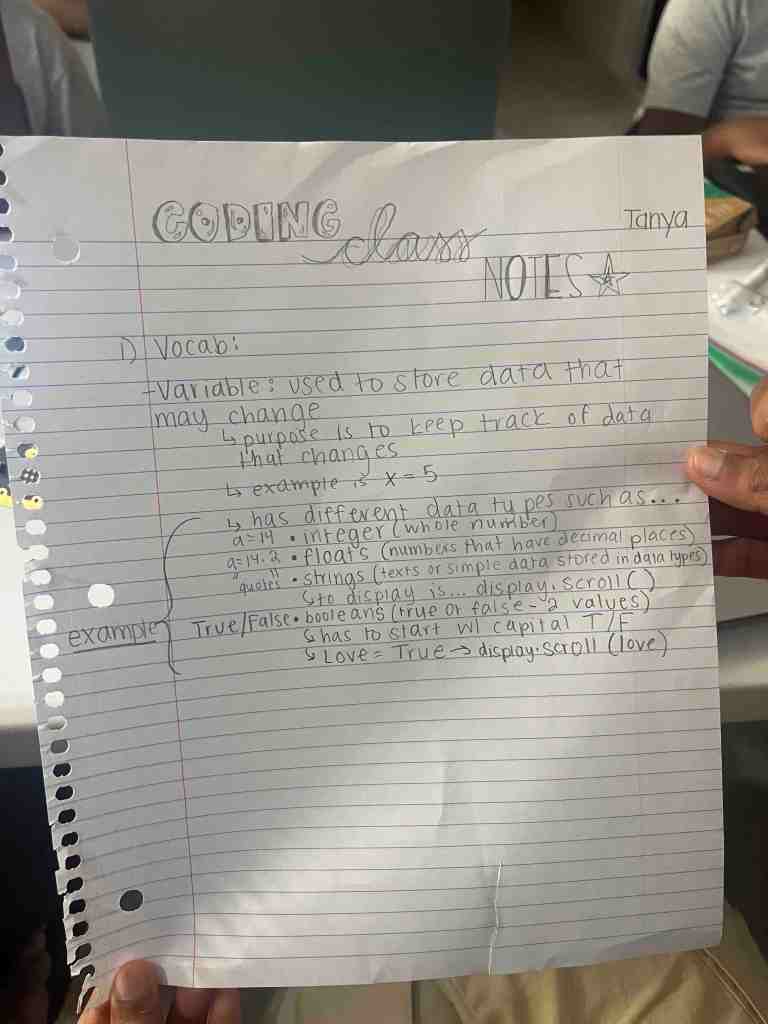 CODING class
Tanya
NOTES
1) Vocab:
-Variable: used to store data that
may change
↳ purpose is to keep track of data
that changes
↳ example is x = 5
↳ has different data types such as...
a=14 • integer (whole number)
a=14.2 • floats (numbers that have decimal places)
"quotes" • strings (texts or simple data stored in data types)
↳ to display is... display.scroll()
example True/False • booleans (true or false - 2 values)
↳ has to start w/ capital T/F
↳ Love = True → display.scroll (love)